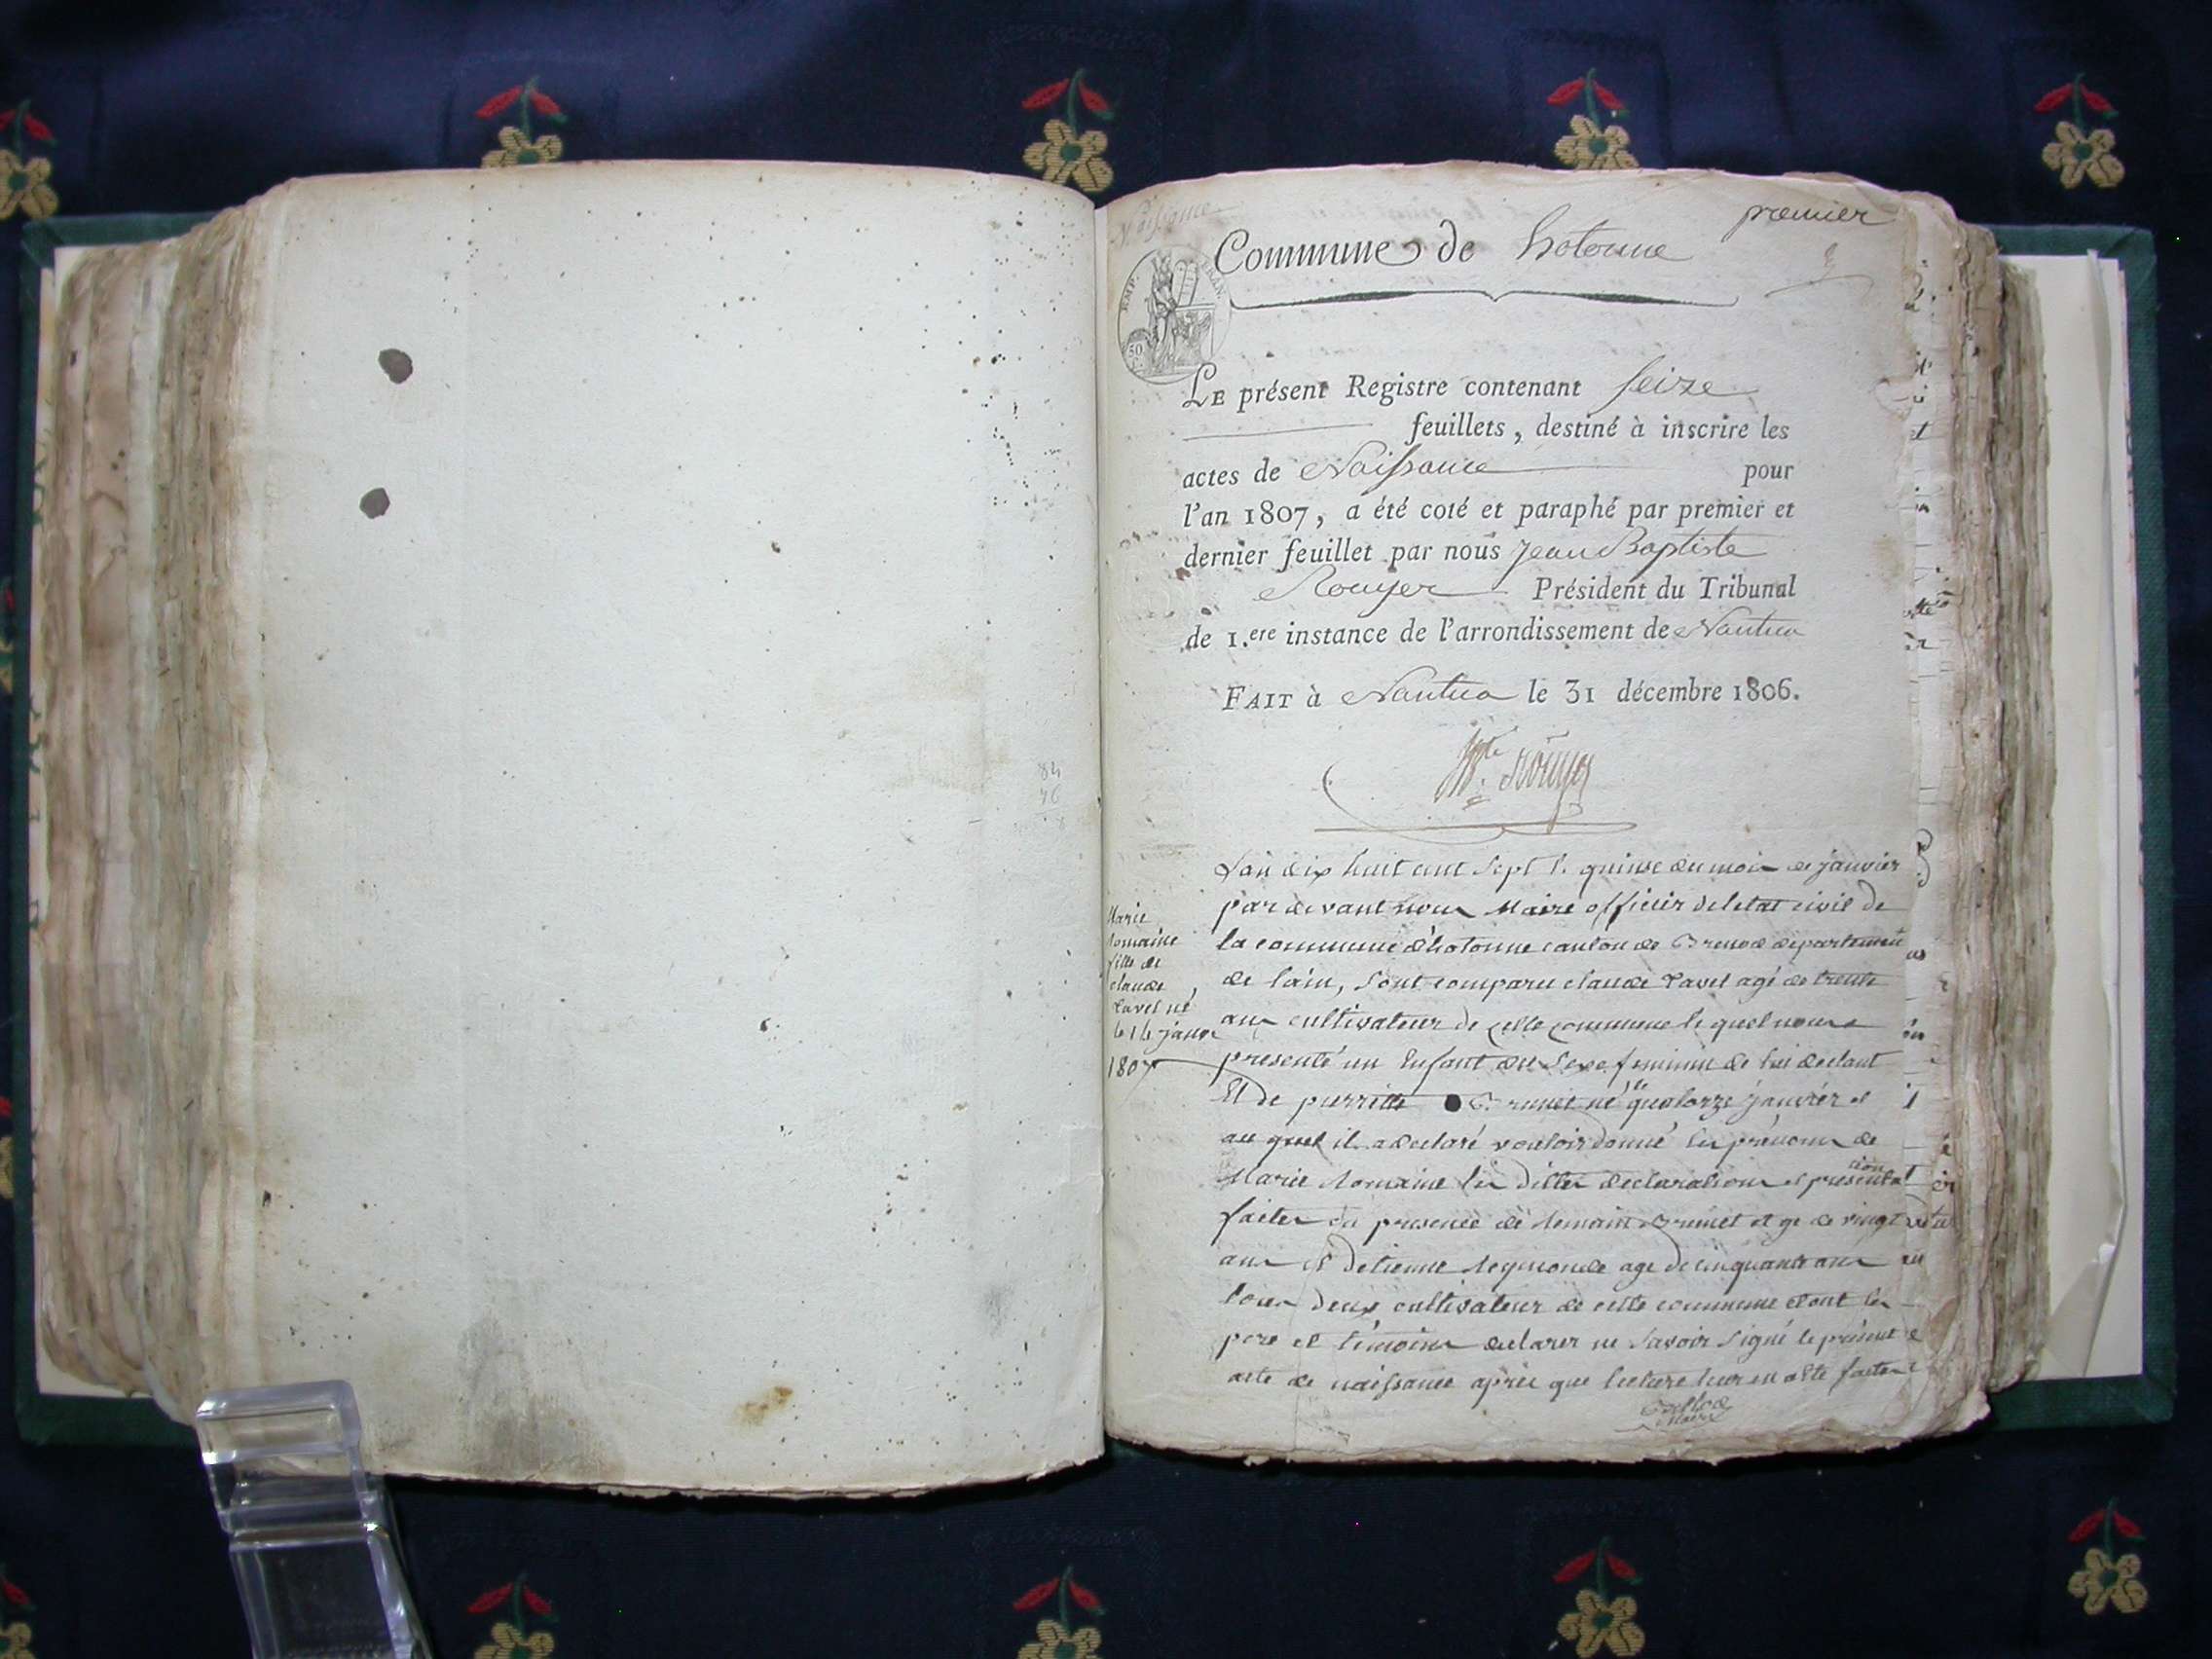 Naissance
premier
Commune de hotonne
EMP. FRAN.
50 C.
LE présent Registre contenant seize
feuillets, destiné à inscrire les
actes de Naissance pour
l'an 1807, a été coté et paraphé par premier et
dernier feuillet par nous Jean Baptiste
Rouyer Président du Tribunal
de 1.ere instance de l'arrondissement de Nantua
FAIT à Nantua le 31 décembre 1806.
Rouyer
Marie
Romaine
fille de
claude
Tavel né
le 14 janv
1807
L'an dix huit cent sept le quinse du mois de janvier
par devant nous Maire officier deletat civil de
la commune d'hotonne canton de Brenod departement
de lain, sont comparu claude Tavel agé de trente
ans cultivateur de cette commune le quel nous a
presenté un Enfant du sexe feminin de lui declant
Et de pierrette Brunet né le quatorze janvier et
au quel il a declaré vouloir donné les prénoms de
Marie Romaine les dittes declarations et presentation
faites en presence de Romain Brunet et ge de vingt
ans et detienne Reymond age de cinquante ans
tous deux cultivateur de cette commune et ont les
pere et témoins declarer ne savoir signé le présent
acte de naissance apries que lecture leur en a été faite
Maire